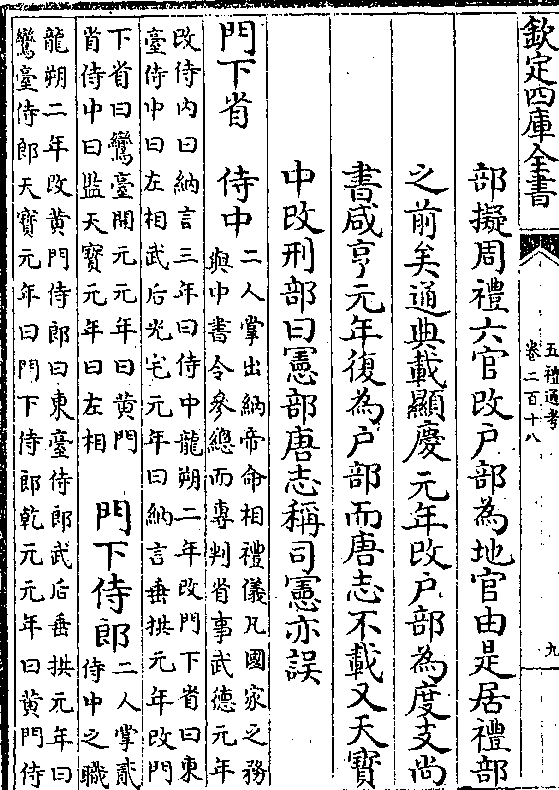 欽定四庫全書
五禮通考
卷二百十八
九
部擬周禮六官改戶部為地官由是居禮部
之前矣通典載顯慶元年改戶部為度支尚
書咸亨元年復為戶部而唐志不載又天寶
中改刑部曰憲部唐志稱司憲亦誤
門下省 侍中
二人掌出納帝命相禮儀凡國家之務
與中書令參總而專判省事武德元年
改侍内曰納言三年曰侍中龍朔二年改門下省曰東
臺侍中曰左相武后光宅元年曰納言垂拱元年改門
下省曰鸞臺開元元年曰黃門
省侍中曰監天寶元年曰左相
門下侍郎
二人掌貳
侍中之職
龍朔二年改黃門侍郎曰東臺侍郎武后垂拱元年曰
鸞臺侍郎天寶元年曰門下侍郎乾元元年曰黃門侍